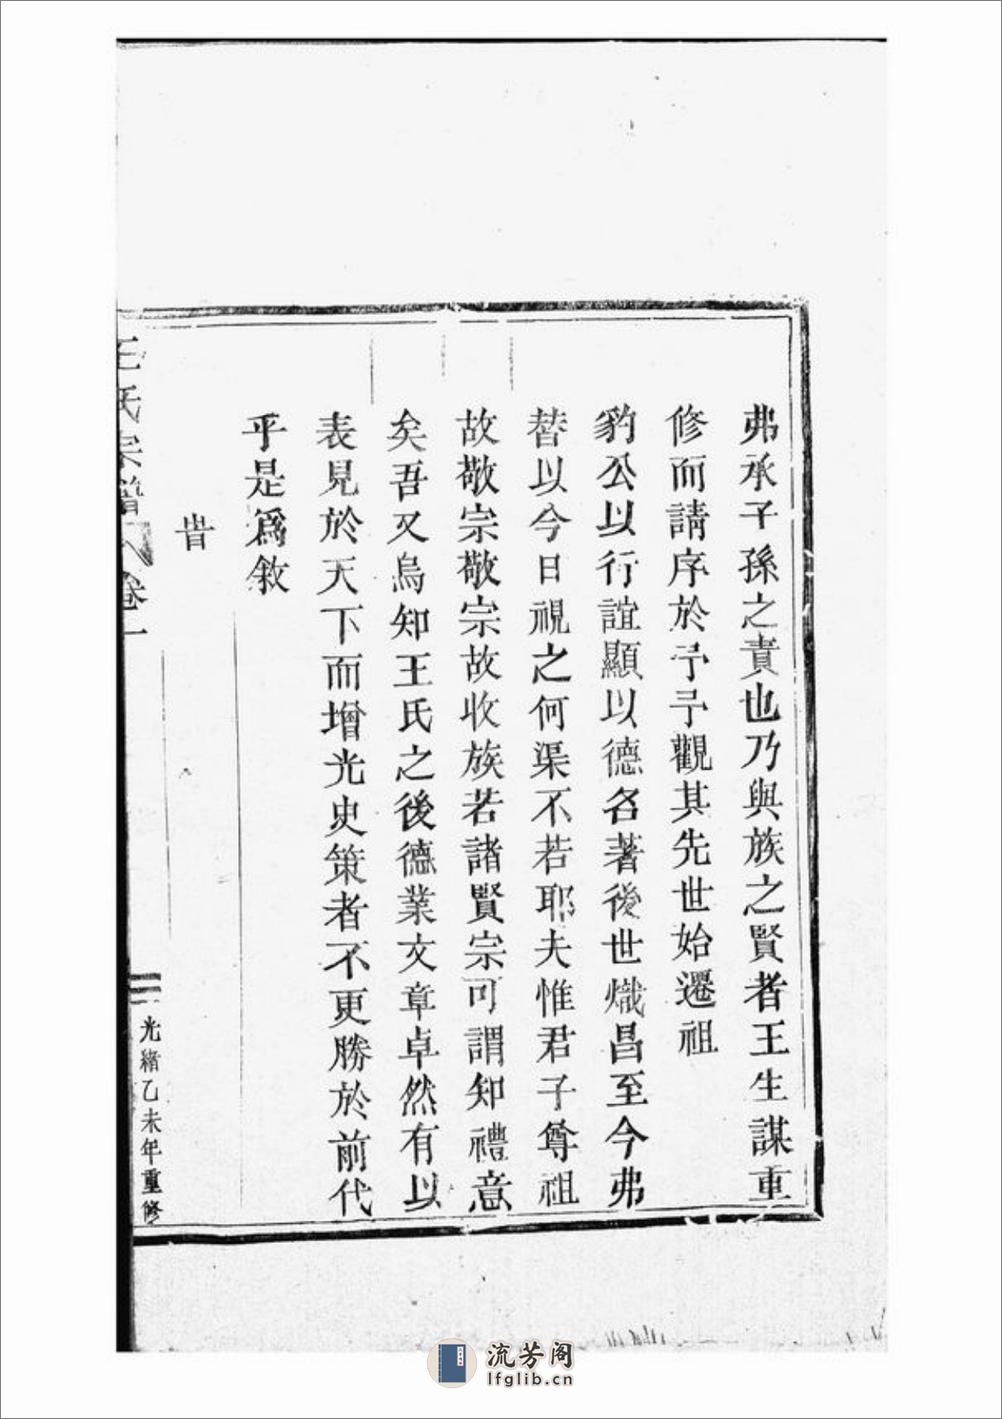 弗承子孫之責也乃與族之賢者王生謀重
修而請序於予予觀其先世始遷祖
豹公以行誼顯以德名著後世熾昌至今弗
替以今日視之何渠不若耶夫惟君子尊祖
故敬宗敬宗故收族若諸賢宗可謂知禮意
矣吾又烏知王氏之後德業文章卓然有以
表見於天下而增光史策者不更勝於前代
乎是爲敘
旹
王氏宗譜 卷一
光緒乙未年重修
流芳阁
lfglib.cn